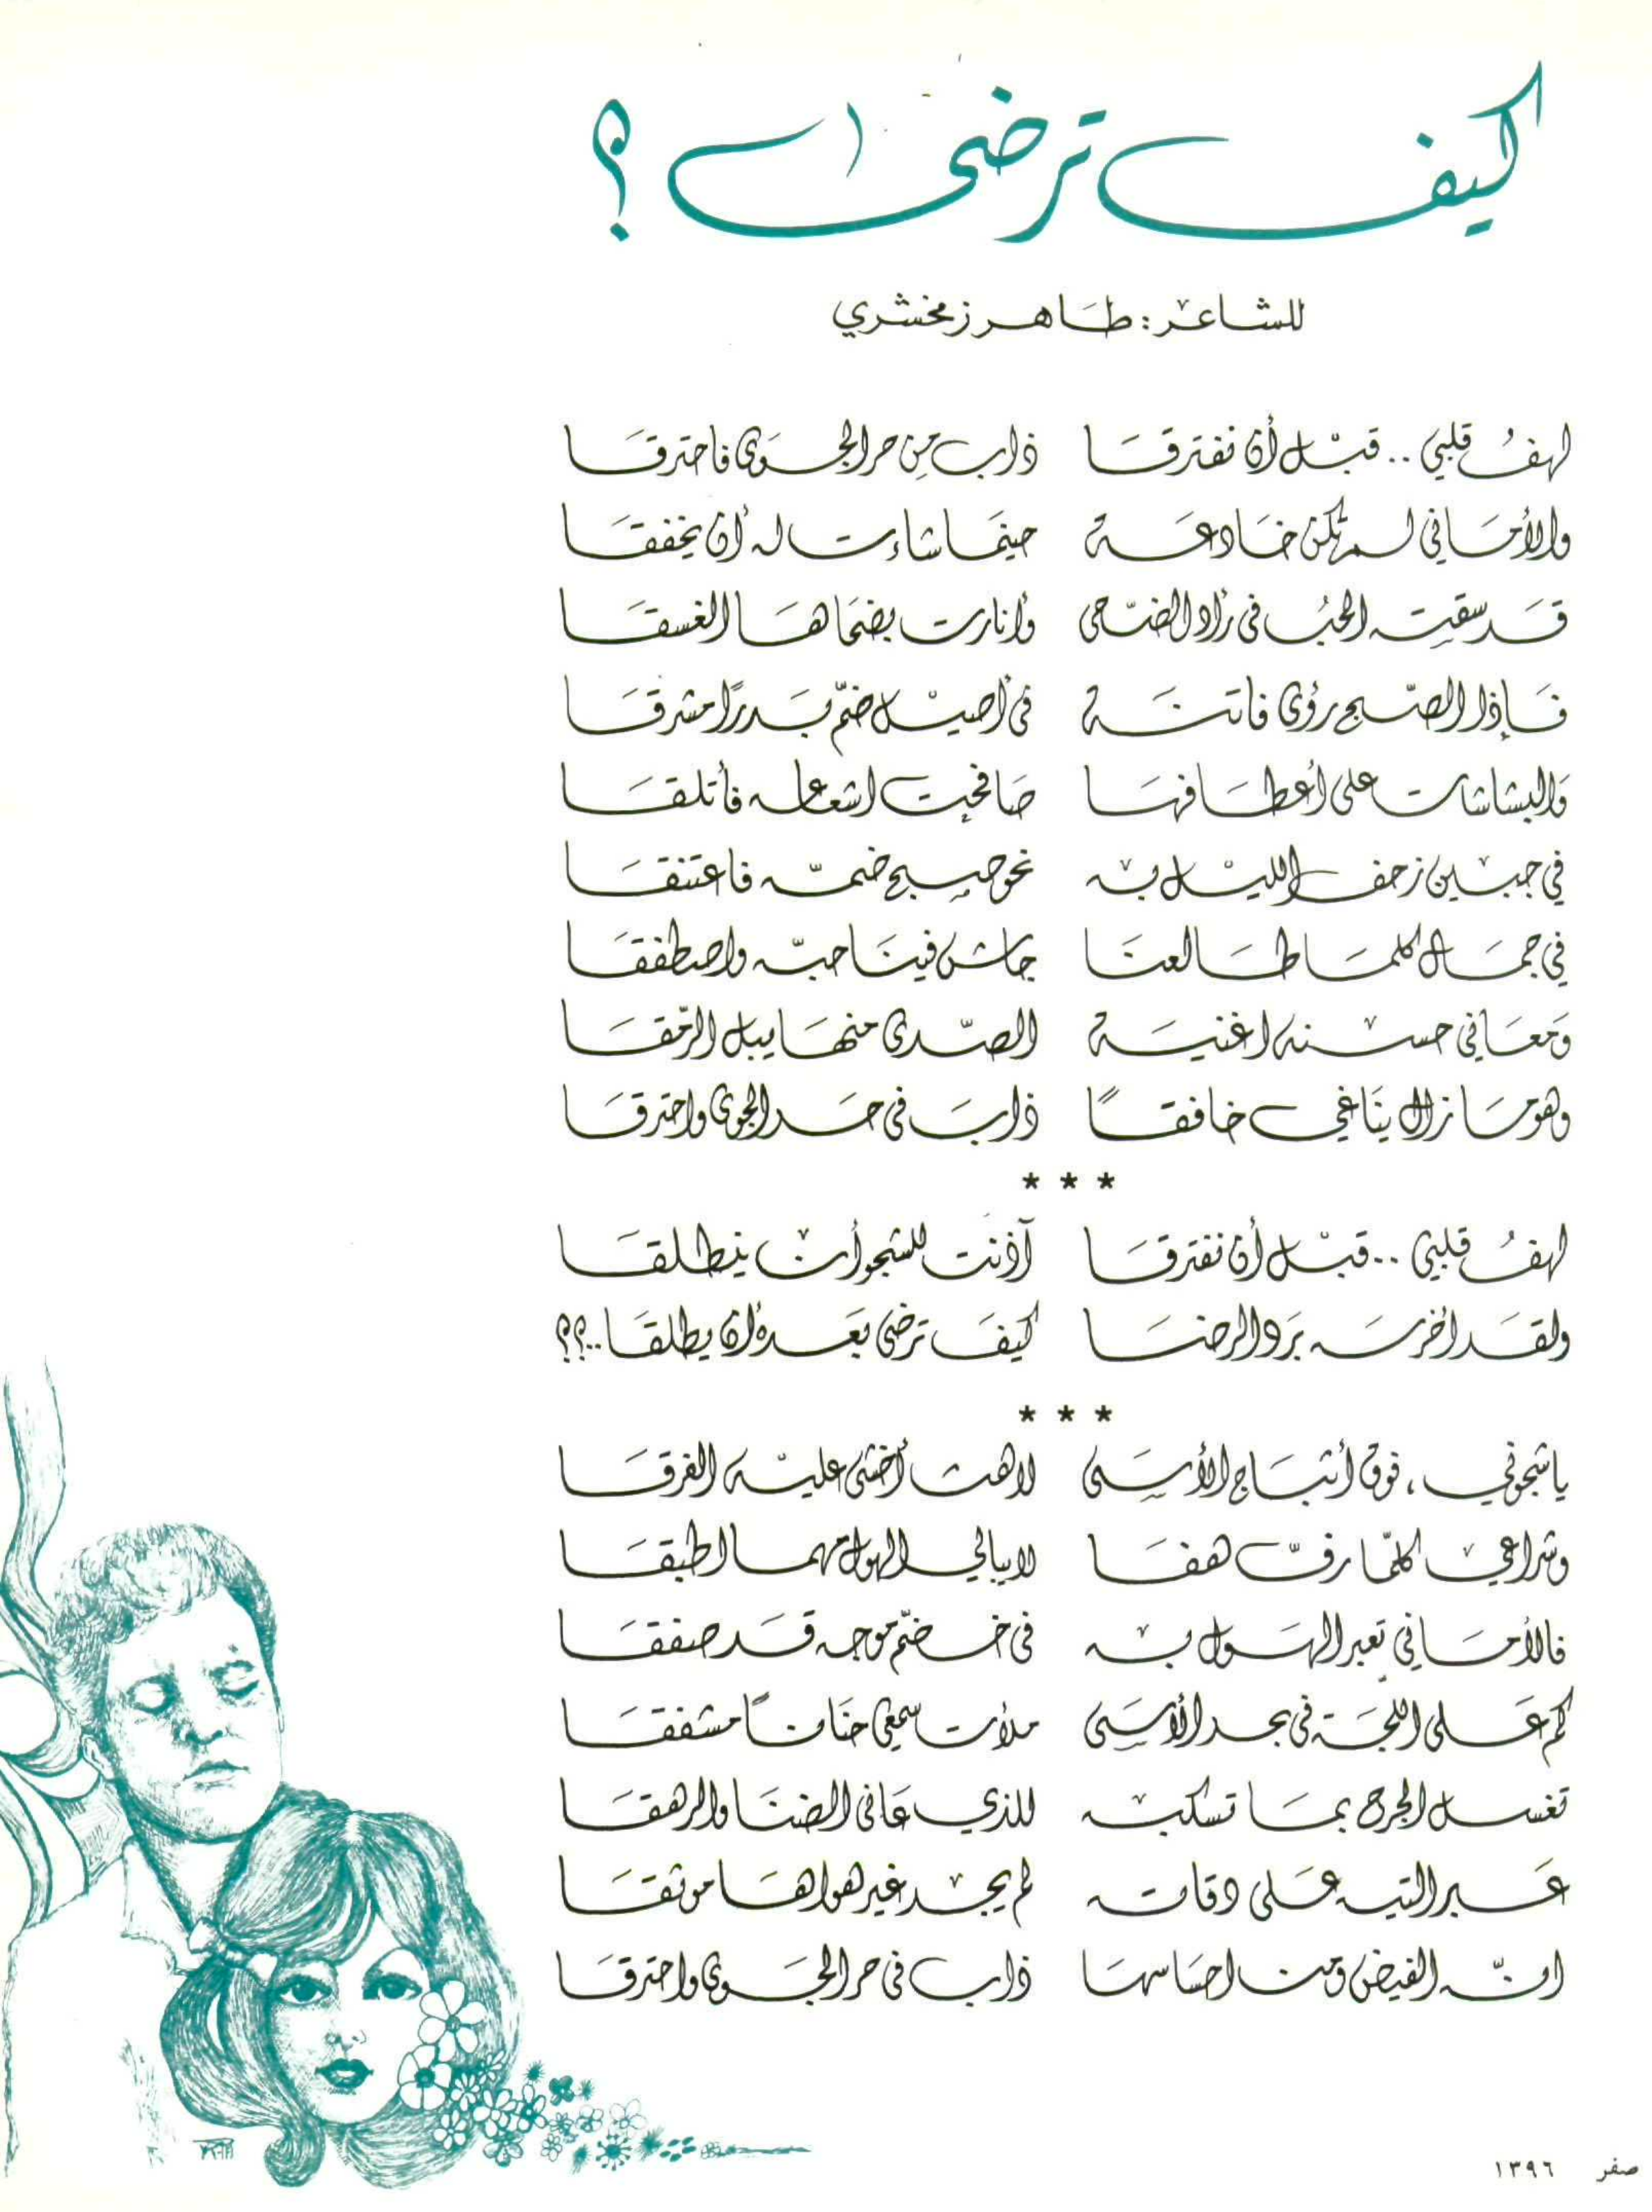 كيف ترضى ؟
للشاعر : طاهر زمخشري
لهفُ قلبي .. قبْل أن نفترقَا ذاب مِن حر الجوَى فاحترقَا
والأمَاني لم تكن خَادعَة حيثمَا شاءت له أن يخفقَا
قَد سقيت الحبُ في رأد الضّحى وأنارت بضحَاهَا الغسقَا
فَإذا الصّبح رؤى فاتنَة في أصيْل ضمّ بَدرًا مشرقَا
وَالبشاشات على أعطَافهَا صَافحت اشعاعه فأتلقَا
في جبين زحف الليْل به نحو صبح ضمّه فاعتنقَا
في جمَال كلمَا طَالعنَا جاش فينَا حبّه واصطفقَا
وَمعَاني حسنه اغنيَة الصّدى منهَا يبل الرّمقَا
وهو مَا زال ينَاغي خافقًا ذابَ في حَر الجوى واحترقَا
* * *
لهفُ قلبي .. قبْل أن نفترقَا آذنت للشجو أن ينطلقَا
ولقَد أخرسَه بَرد الرضَا كيفَ ترضى بَعَده أن يطلقَا ..؟؟
* * *
يا شجوني ، فوق أثبَاج الأسَى لاهث أخشى عليْه الغرقَا
وشراعي كلمّا رفّ هفَا لا يبالي الهول مهما اطبقَا
فالأمَاني تعبر الهَول به في خضمّ موجه قَد صفقَا
كم عَلى اللجَة في بحر الأسَى ملأت سمعي حنَانًا مشفقَا
تغسل الجرح بمَا تسكبه للذي عَانى الضنَا والرهقَا
عَبر التيه عَلى دقاته لم يجد غير هواهَا موثقَا
انّه الفيض ومن احسَاسهَا ذاب في حر الجوَى واحترقَا
صفر ١٣٩٦